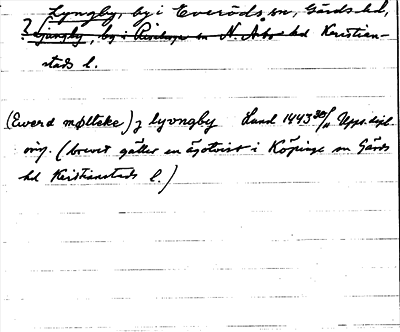 Lyngby, by i Everöds sn, Gärds hd,
? Ljungby, by i sn N. Åsbo hd Kristian-
stads l.
(Everd mølteke) j lyvngby Lund 1443 30/11 Upps. dipl.
orig. (brevet gäller en ägotvist i Köpinge sn Gärds
hd Kristianstads l.)